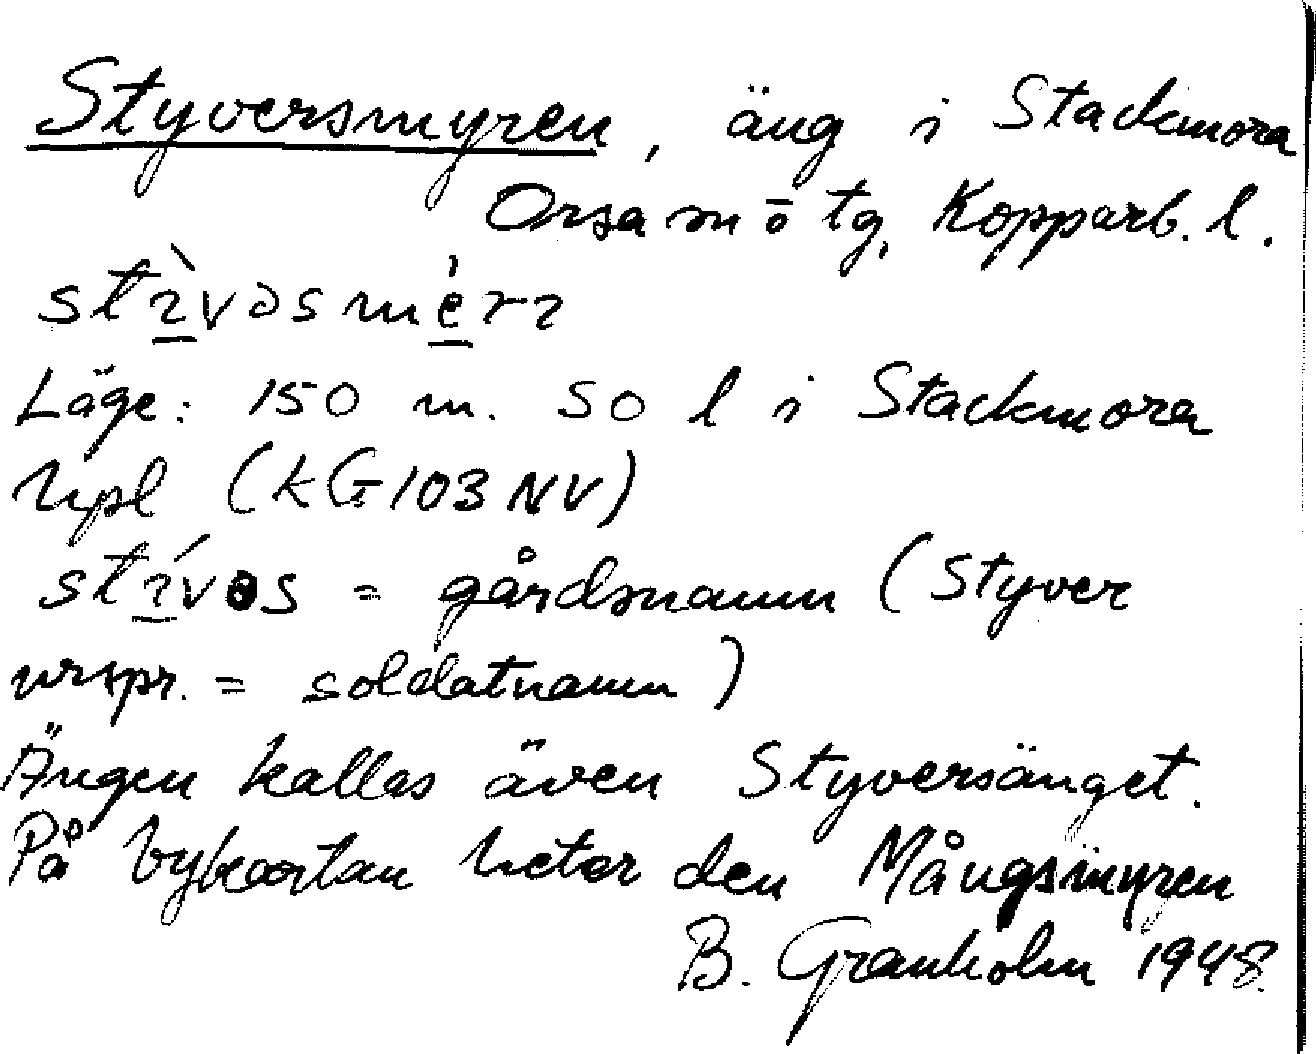 Styversmyren, äng i Stackmora
Orsa sn ö tg, Kopparb. l.
Läge: 150 m. SO l i Stackmora
hpl (kG103NV)
= gårdsnamn (Styver
urspr. = soldatnamn)
Ängen kallas även Styversänget.
På bykartan heter den Mångsmyren
B. Granholm 1948.